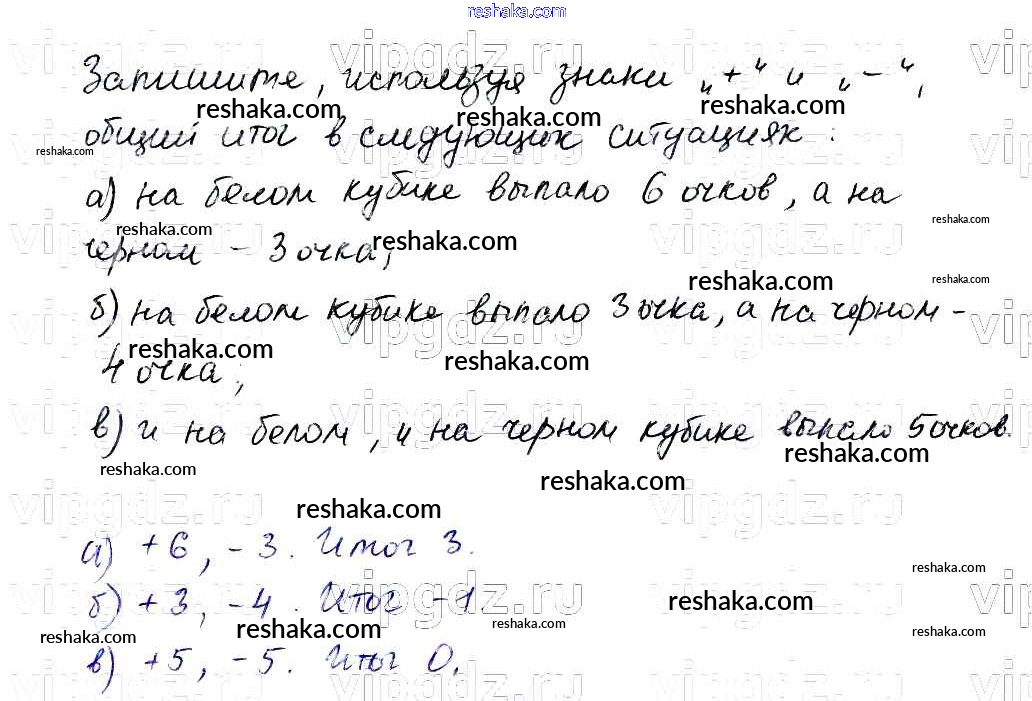 reshaka.com
Запишите, используя знаки „+“ и „−“,
общий итог в следующих ситуациях:
а) на белом кубике выпало 6 очков, а на
черном – 3 очка;
б) на белом кубике выпало 3 очка, а на черном –
4 очка;
в) и на белом, и на черном кубике выпало 5 очков.
а) +6, -3. Итог 3.
б) +3, -4. Итог -1.
в) +5, -5. Итог 0.